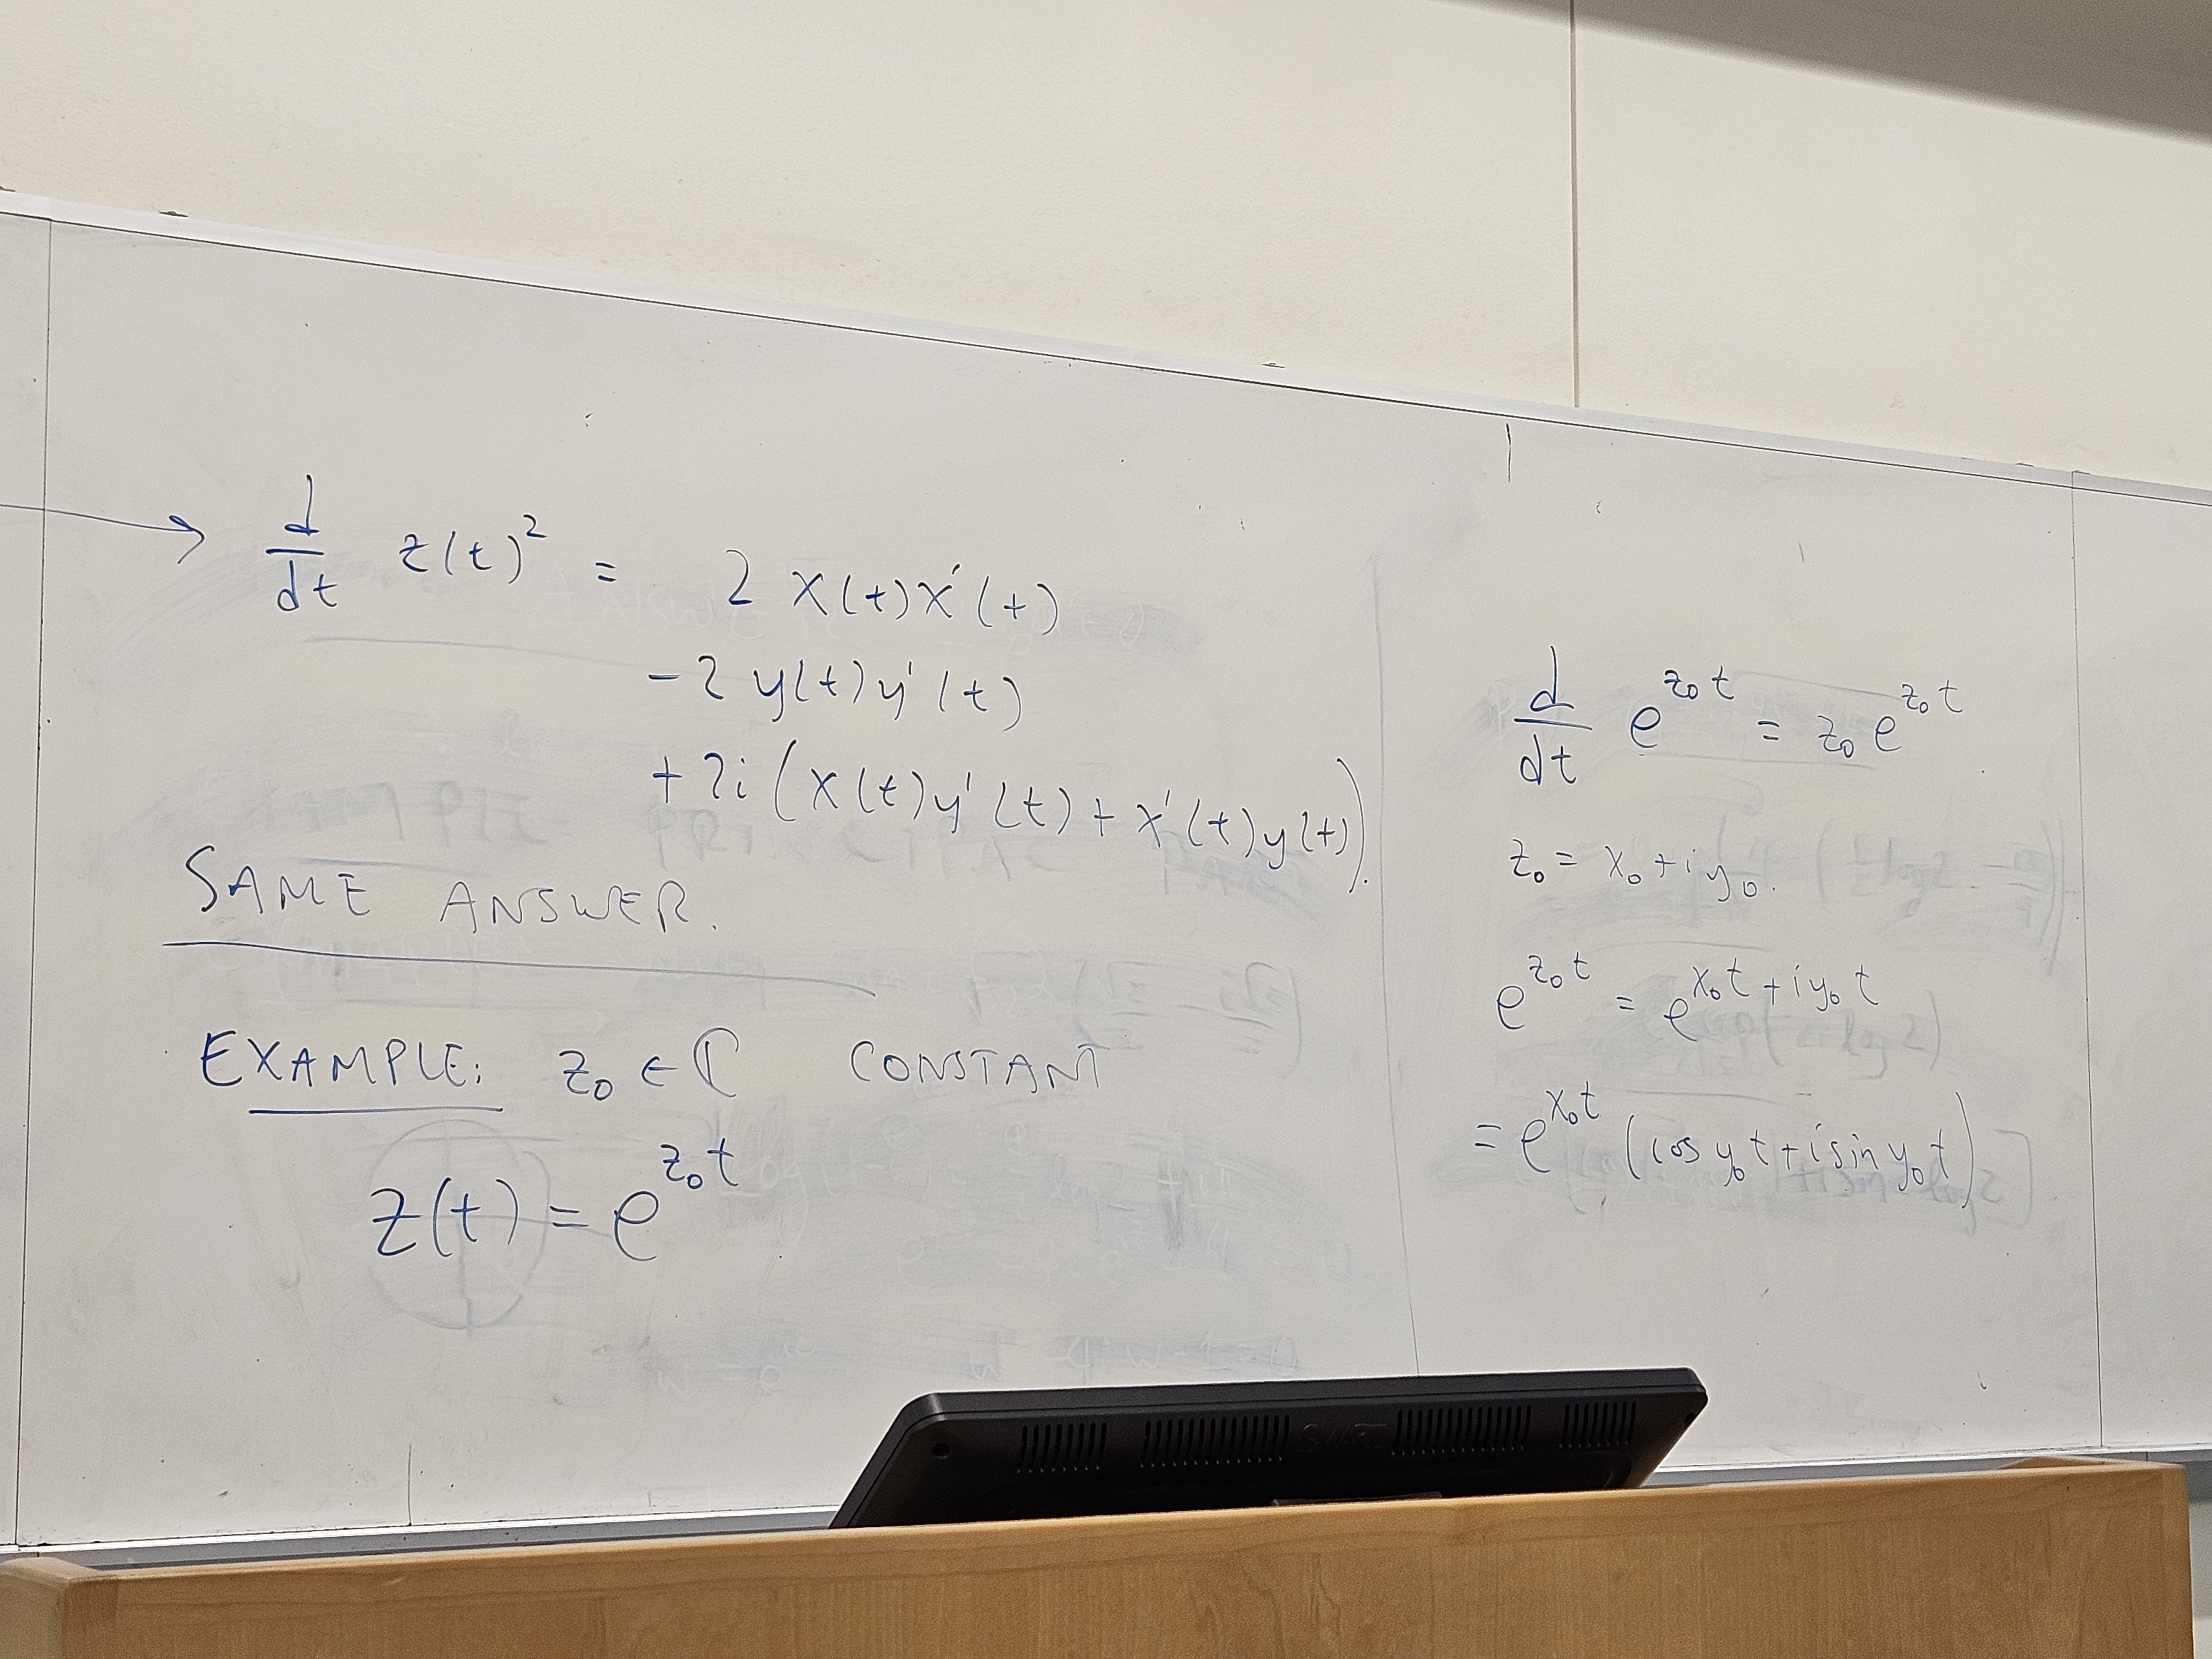 → d/dt z(t)² = 2 x(t)x'(t)
- 2 y(t)y'(t)
+ 2i (x(t)y'(t) + x'(t)y(t)).
SAME ANSWER.
EXAMPLE: z₀ ∈ ℂ CONSTANT
z(t) = e^{z₀t}
d/dt e^{z₀t} = z₀ e^{z₀t}.
z₀ = x₀ + iy₀.
e^{z₀t} = e^{x₀t + iy₀t}
= e^{x₀t} (cos y₀t + i sin y₀t)